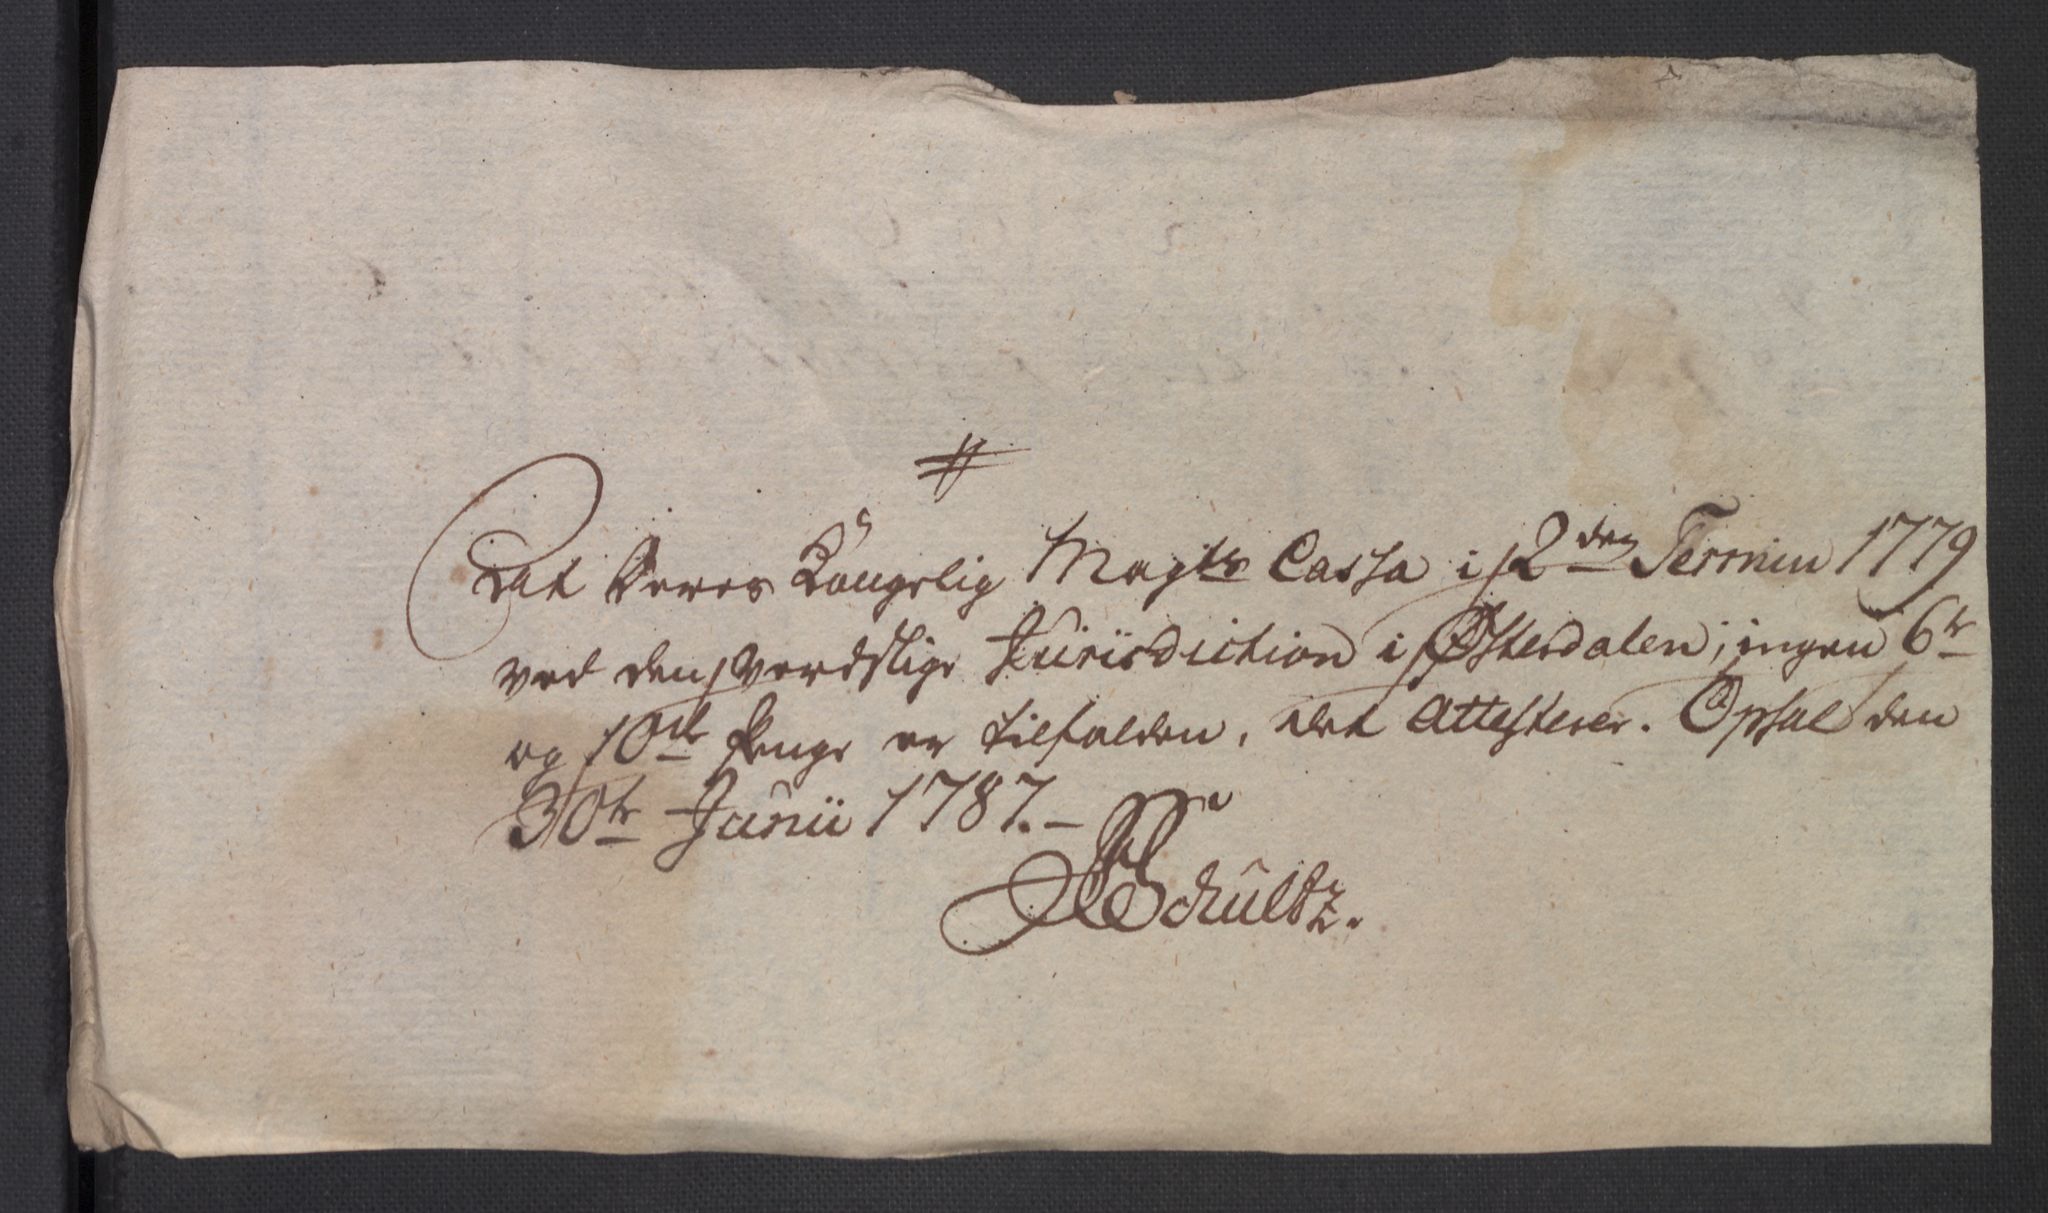 #
At Deres Kongelig Mayts Cassa i 2den Termin 1779
ved den verdslige Jurisdiction i Østerdalen, ingen 6te
og 10de Penge er tilfalden, det Attesterer. Opsal den
30te Junii 1787.-
Schultz.